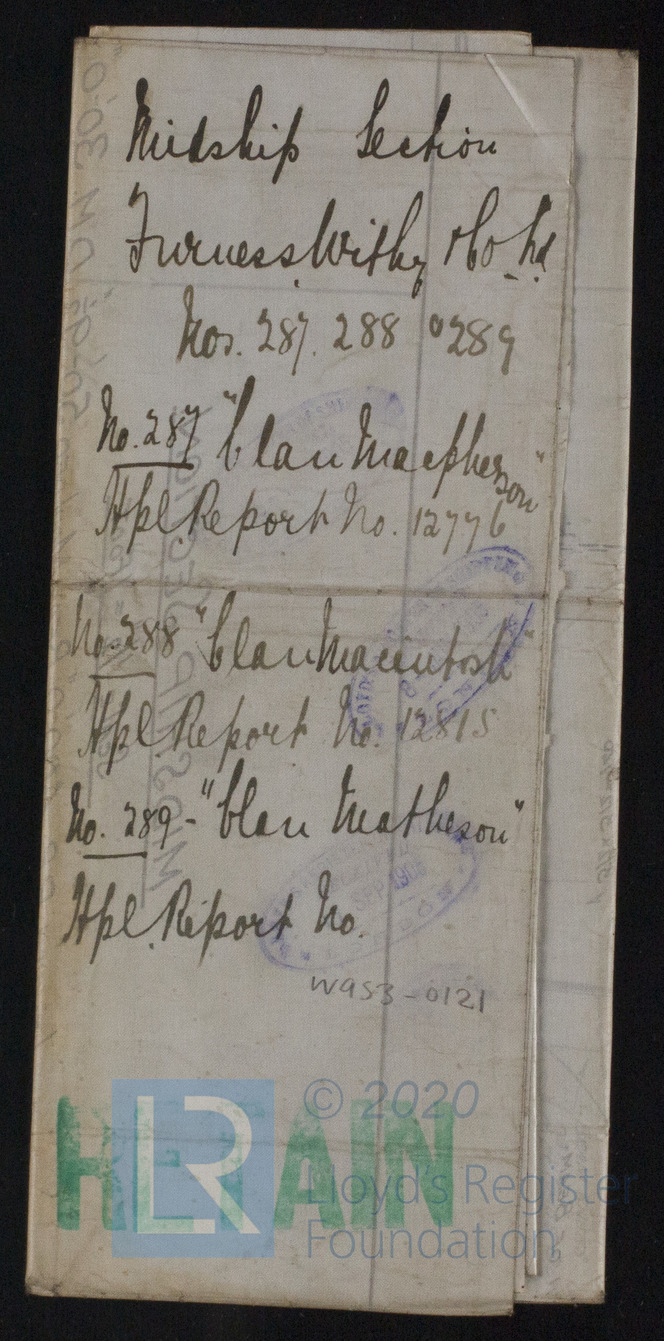 Midship Section
Furness Withy & Co. Ld
Nos. 287. 288 & 289
No. 287 "Clan Macpherson"
Hpl. Report No. 12776
No. 288 "Clan Macintosh"
Hpl. Report No. 12815
No. 289 - "Clan Matheson"
Hpl. Report No.
W953-0121
LR
© 2020
Lloyd's Register
Foundation